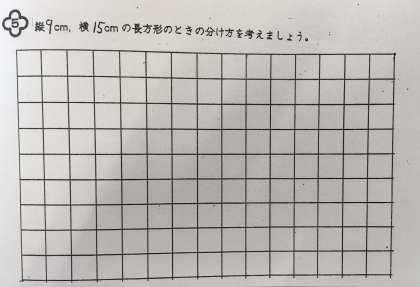 5 縦9cm, 横15cmの長方形のときの分け方を考えましょう。